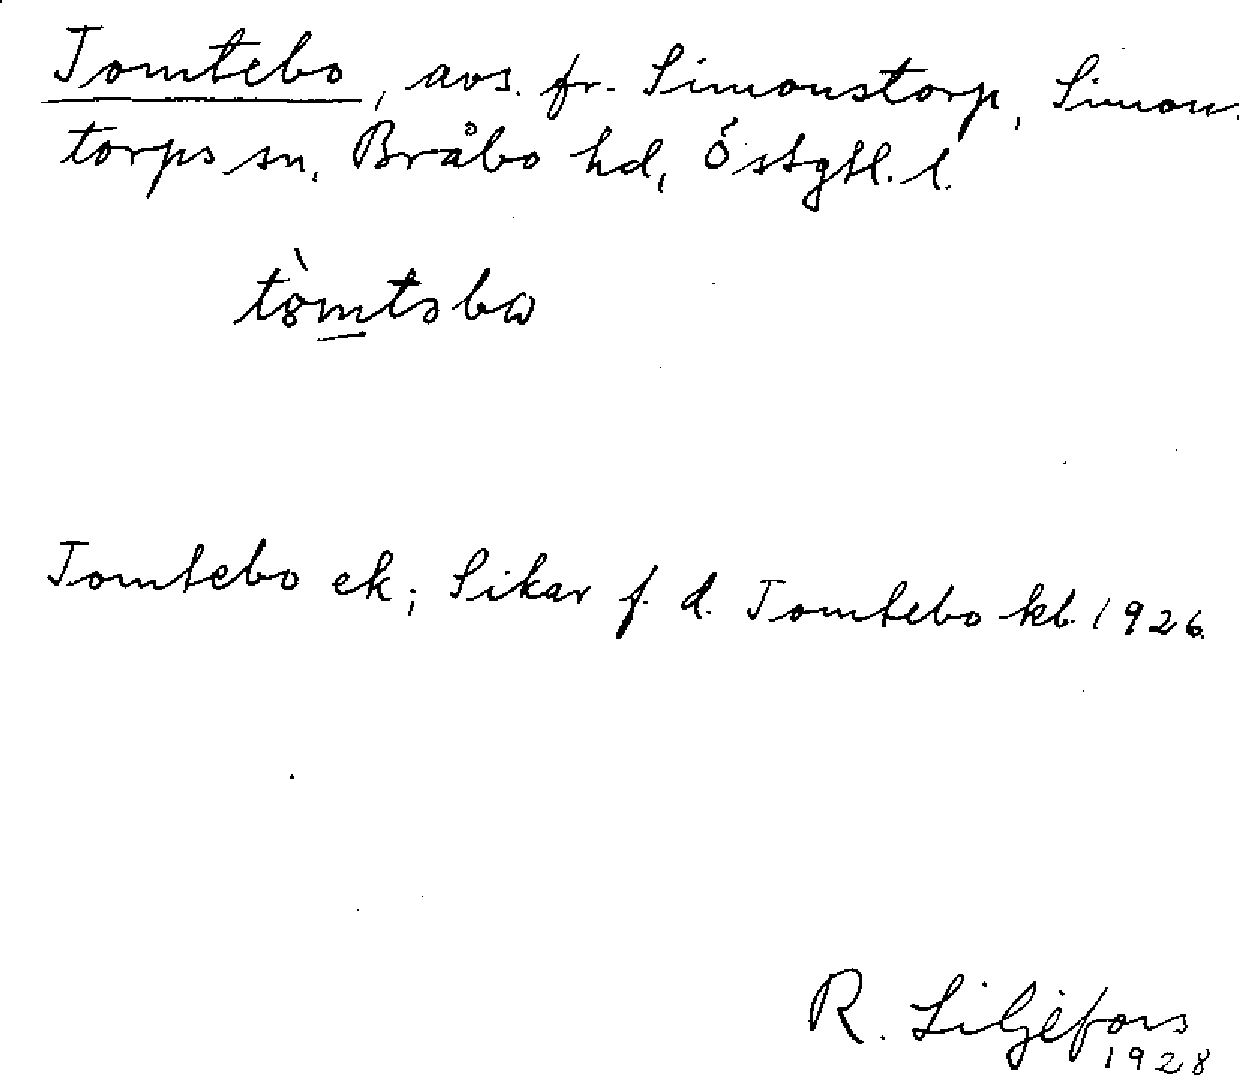 Tomtebo, avs. fr. Simonstorp, Simons-
torps sn, Bråbo hd, Östgtl. l.
Tomtebo ek; Sikar f. d. Tomtebo kb. 1926.
R. Liljefors
1928